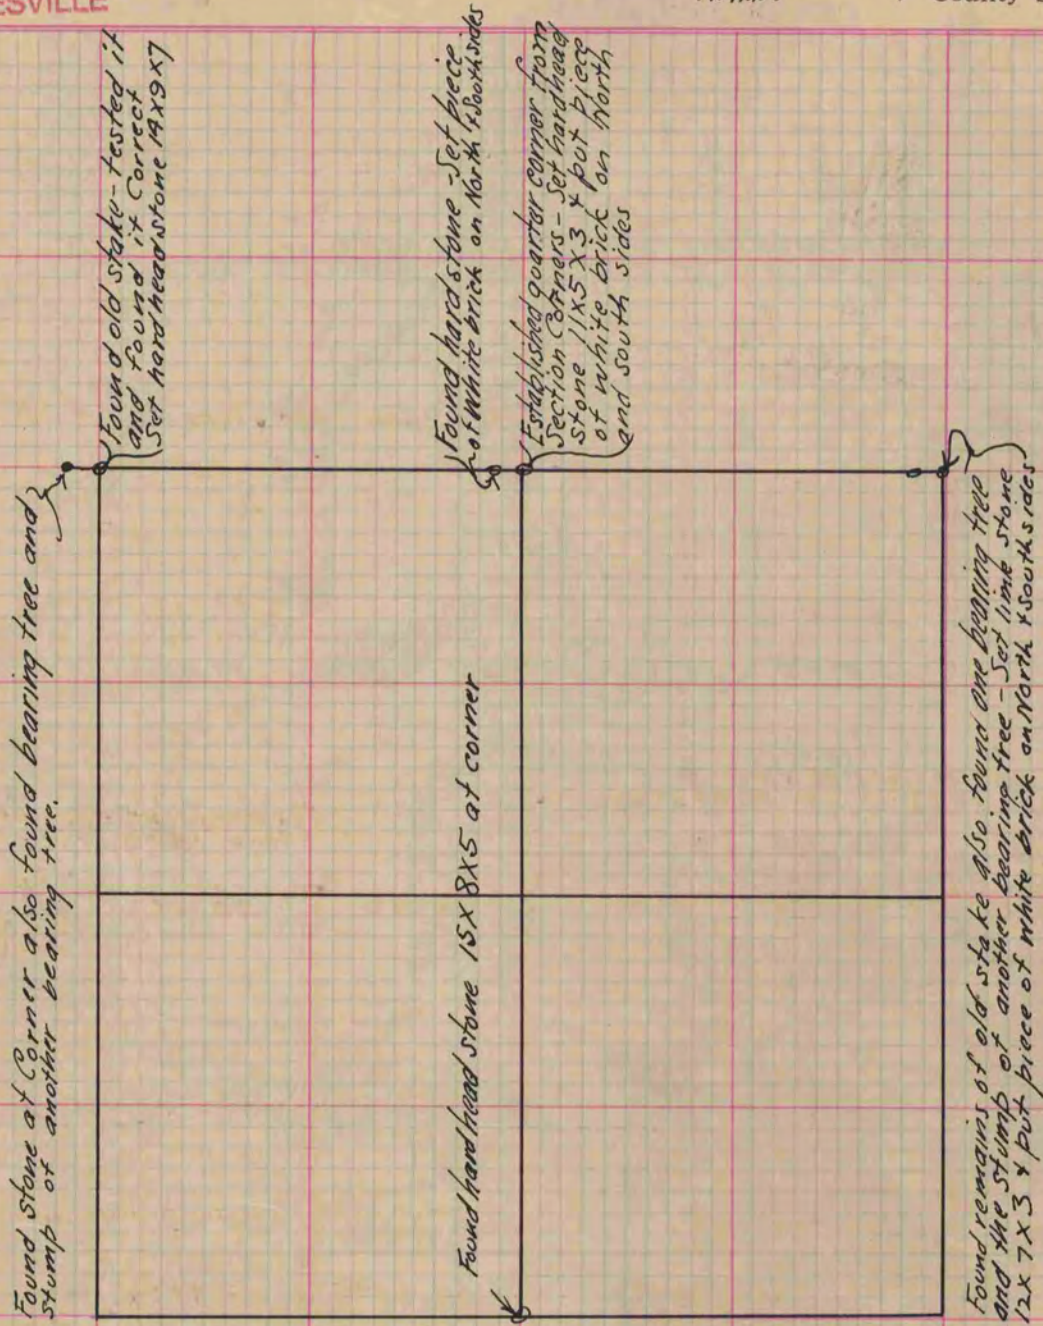 ESVILLE
County
Found stone at Corner also found bearing tree and
stump of another bearing tree.
Found old stake - tested it
and found it Correct
Set hardheadstone 14x9x7
Found hardstone - Set piece
of White brick on North & South sides
Established quarter corner from
Section Corners - Set hardhead
stone 11x5x3 & put piece
of white brick on North
and south sides
Found hardhead stone 15x8x5 at corner
Found remains of old stake also found one bearing tree
and the stump of another bearing tree - Set lime stone
12x7x3 & put piece of white brick on North & South sides